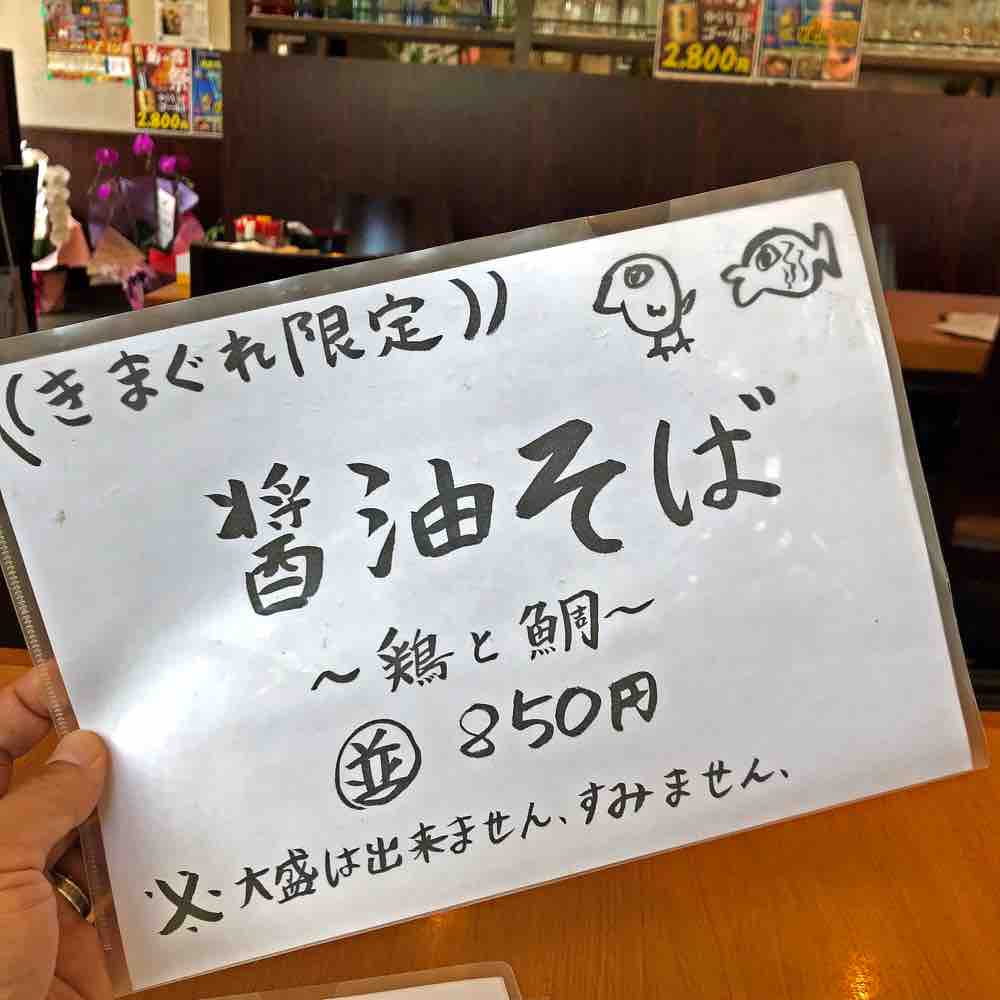 ((きまぐれ限定))
醤油そば
～鶏と鯛～
並 850円
※大盛は出来ません、すみません、
2,800円
2,800円